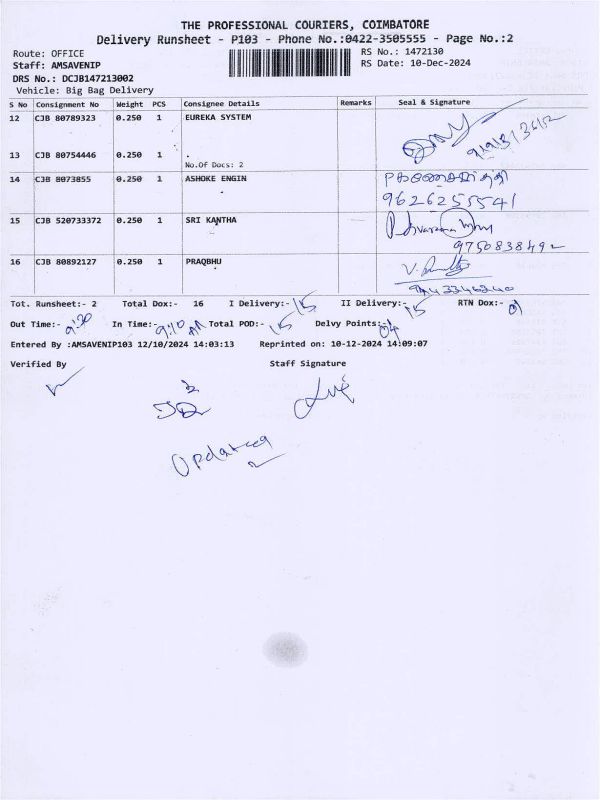 THE PROFESSIONAL COURIERS, COIMBATORE
Delivery Runsheet - P103 - Phone No.:0422-3505555 - Page No.:2
Route: OFFICE RS No.: 1472130
Staff: AMSAVENIP RS Date: 10-Dec-2024
DRS No.: DCJB147213002
Vehicle: Big Bag Delivery
S No Consignment No Weight PCS Consignee Details Remarks Seal & Signature
12 CJB 80789323 0.250 1 EUREKA SYSTEM
13 CJB 80754446 0.250 1 .
No.Of Docs: 2
14 CJB 8073855 0.250 1 ASHOKE ENGIN
9626255541
15 CJB 520733372 0.250 1 SRI KANTHA
9750838492
16 CJB 80892127 0.250 1 PRAQBHU
9443346240
Tot. Runsheet:- 2 Total Dox:- 16 I Delivery:- 15 II Delivery:- 15 RTN Dox:- 01
Out Time:- 9:30 In Time:- 9:10 AM Total POD:- 15 Delvy Points:- 04
Entered By :AMSAVENIP103 12/10/2024 14:03:13 Reprinted on: 10-12-2024 14:09:07
Verified By Staff Signature
Updated